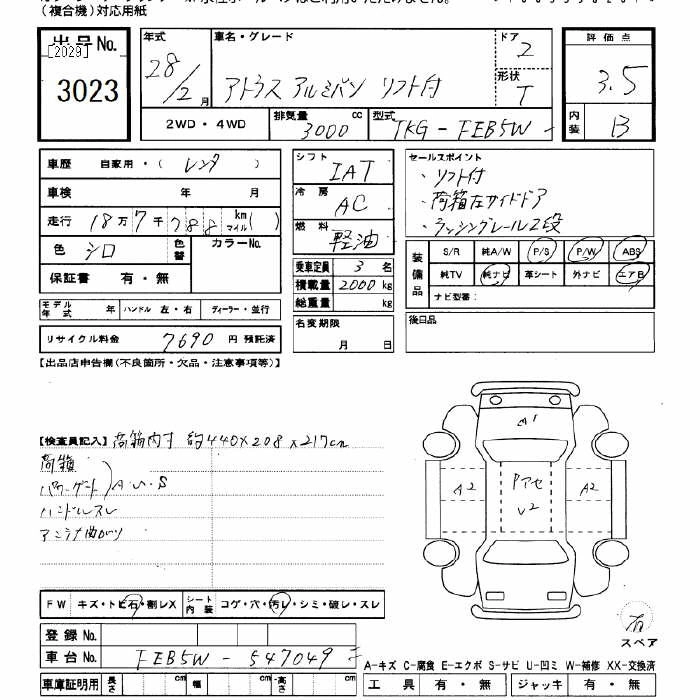 （複合機）対応用紙
出品No.
[2029]
3023
年式
28/2月
車名・グレード
アトラス アルミバン リフト付
ドア
2
形状
T
評価点
3.5
内装
B
2WD・4WD
排気量
3000
cc
型式
TKG-FEB5W-
車歴 自家用・( レンタ )
車検 年 月
走行 18万7千288 km マイル( )
色
シロ
色替
カラーNo.
保証書 有・無
モデル年式 年
ハンドル 左・右
ディーラー・並行
リサイクル料金 7690 円 預託済
シフト
IAT
冷房
AC
燃料
軽油
乗車定員 3 名
積載量 2000 kg
総重量 kg
名変期限
月 日
セールスポイント
・リフト付
・荷箱左サイドドア
・ラッシングレール2段
装備品
S/R 純A/W P/S P/W ABS
純TV 純ナビ 革シート 外ナビ エアB
ナビ型番：
後日品
【出品店申告欄(不良箇所・欠品・注意事項等)】
【検査員記入】 荷箱内寸 約440×208×217cm
荷箱
パワーゲート
A・U・S
ハンドルスレ
アンテナ曲がり
A1
A2
Pアセ
U2
A2
FW キズ・トビ石・割レX
シート内装 コゲ・穴・汚レ・シミ・破レ・スレ
有
スペア
登録No.
車台No. FEB5W-547049
A-キズ C-腐食 E-エクボ S-サビ U-凹ミ W-補修 XX-交換済
車庫証明用 長さ cm 幅 cm 高さ cm
工具 有・無 ジャッキ 有・無